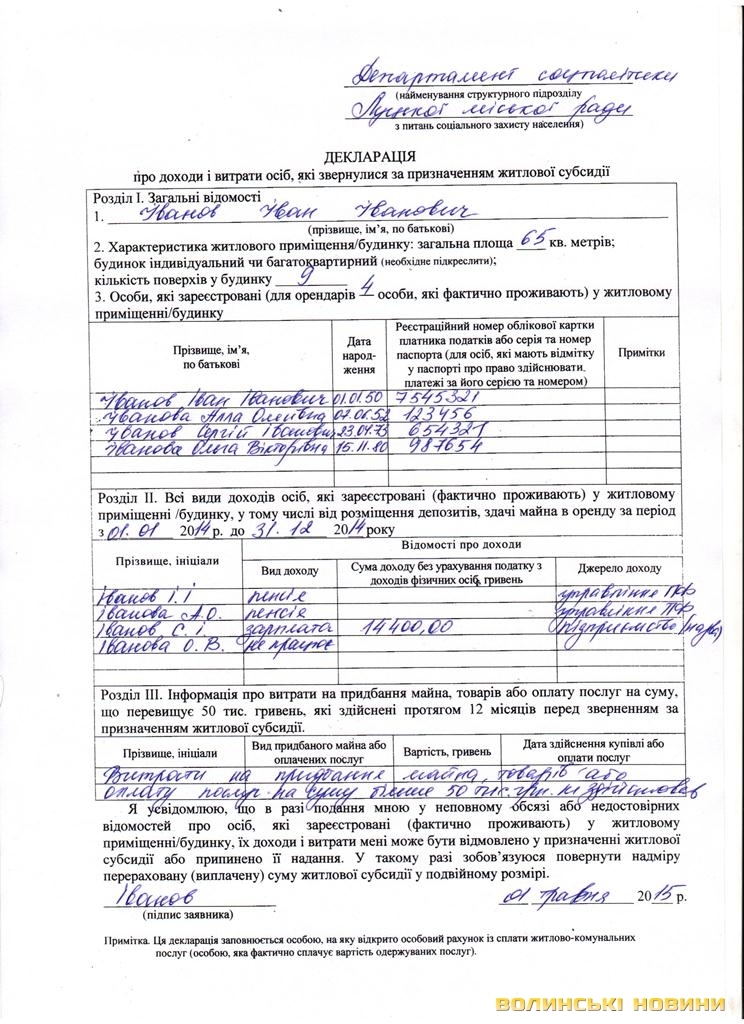 Департамент соцполітики
(найменування структурного підрозділу
Луцької міської ради
з питань соціального захисту населення)
ДЕКЛАРАЦІЯ
про доходи і витрати осіб, які звернулися за призначенням житлової субсидії
Розділ І. Загальні відомості
1. Іванов Іван Іванович
(прізвище, ім’я, по батькові)
2. Характеристика житлового приміщення/будинку: загальна площа 65 кв. метрів;
будинок індивідуальний чи багатоквартирний (необхідне підкреслити);
кількість поверхів у будинку 9
3. Особи, які зареєстровані (для орендарів 4 особи, які фактично проживають) у житловому
приміщенні/будинку
Прізвище, ім’я, по батькові
Дата народ-ження
Реєстраційний номер облікової картки платника податків або серія та номер паспорта (для осіб, які мають відмітку у паспорті про право здійснювати платежі за його серією та номером)
Примітки
Іванов Іван Іванович 01.01.50 7545321
Іванова Алла Олегівна 07.01.52 123456
Іванов Сергій Іванович 23.04.73 654321
Іванова Ольга Вікторівна 15.11.80 987654
Розділ ІІ. Всі види доходів осіб, які зареєстровані (фактично проживають) у житловому
приміщенні /будинку, у тому числі від розміщення депозитів, здачі майна в оренду за період
з 01.01 2014 р. до 31.12 2014 року
Прізвище, ініціали
Відомості про доходи
Вид доходу
Сума доходу без урахування податку з доходів фізичних осіб, гривень
Джерело доходу
Іванов І.І пенсія управління ПФ
Іванова А.О. пенсія управління ПФ
Іванов С.І. зарплата 14400,00 підприємство (назва)
Іванова О.В. не працює
Розділ ІІІ. Інформація про витрати на придбання майна, товарів або оплату послуг на суму,
що перевищує 50 тис. гривень, які здійснені протягом 12 місяців перед зверненням за
призначенням житлової субсидії.
Прізвище, ініціали
Вид придбаного майна або оплачених послуг
Вартість, гривень
Дата здійснення купівлі або оплати послуг
Витрати на придбання майна, товарів або
оплату послуг на суму більше 50 тис. грн. не здійснював
Я усвідомлюю, що в разі подання мною у неповному обсязі або недостовірних
відомостей про осіб, які зареєстровані (фактично проживають) у житловому
приміщенні/будинку, їх доходи і витрати мені може бути відмовлено у призначенні житлової
субсидії або припинено її надання. У такому разі зобов’язуюся повернути надміру
перераховану (виплачену) суму житлової субсидії у подвійному розмірі.
Іванов 01 травня 2015 р.
(підпис заявника)
Примітка. Ця декларація заповнюється особою, на яку відкрито особовий рахунок із сплати житлово-комунальних
послуг (особою, яка фактично сплачує вартість одержуваних послуг).
ВОЛИНСЬКІ НОВИНИ